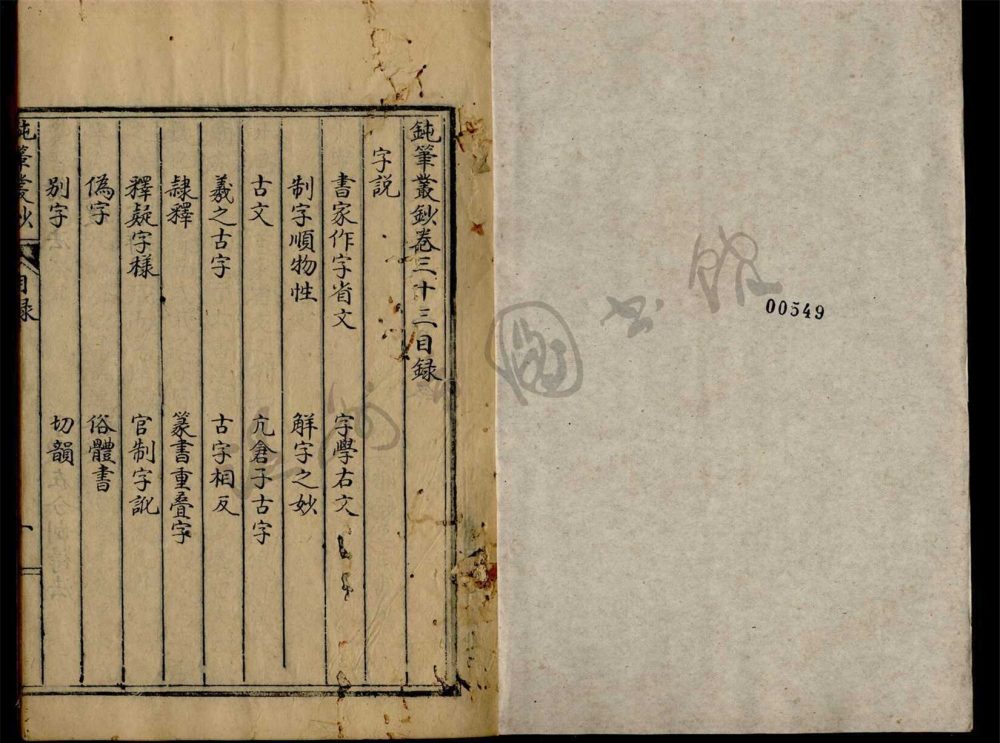 鈍筆叢鈔卷三十三目録
字説
書家作字省文 字學右文
制字順物性 解字之妙
古文 亢倉子古字
羲之古字 古字相反
隸釋 篆書重疊字
釋疑字樣 官制字訛
僞字 俗體書
别字 切韻
鈍筆叢鈔 目録 一
圖書館
00549